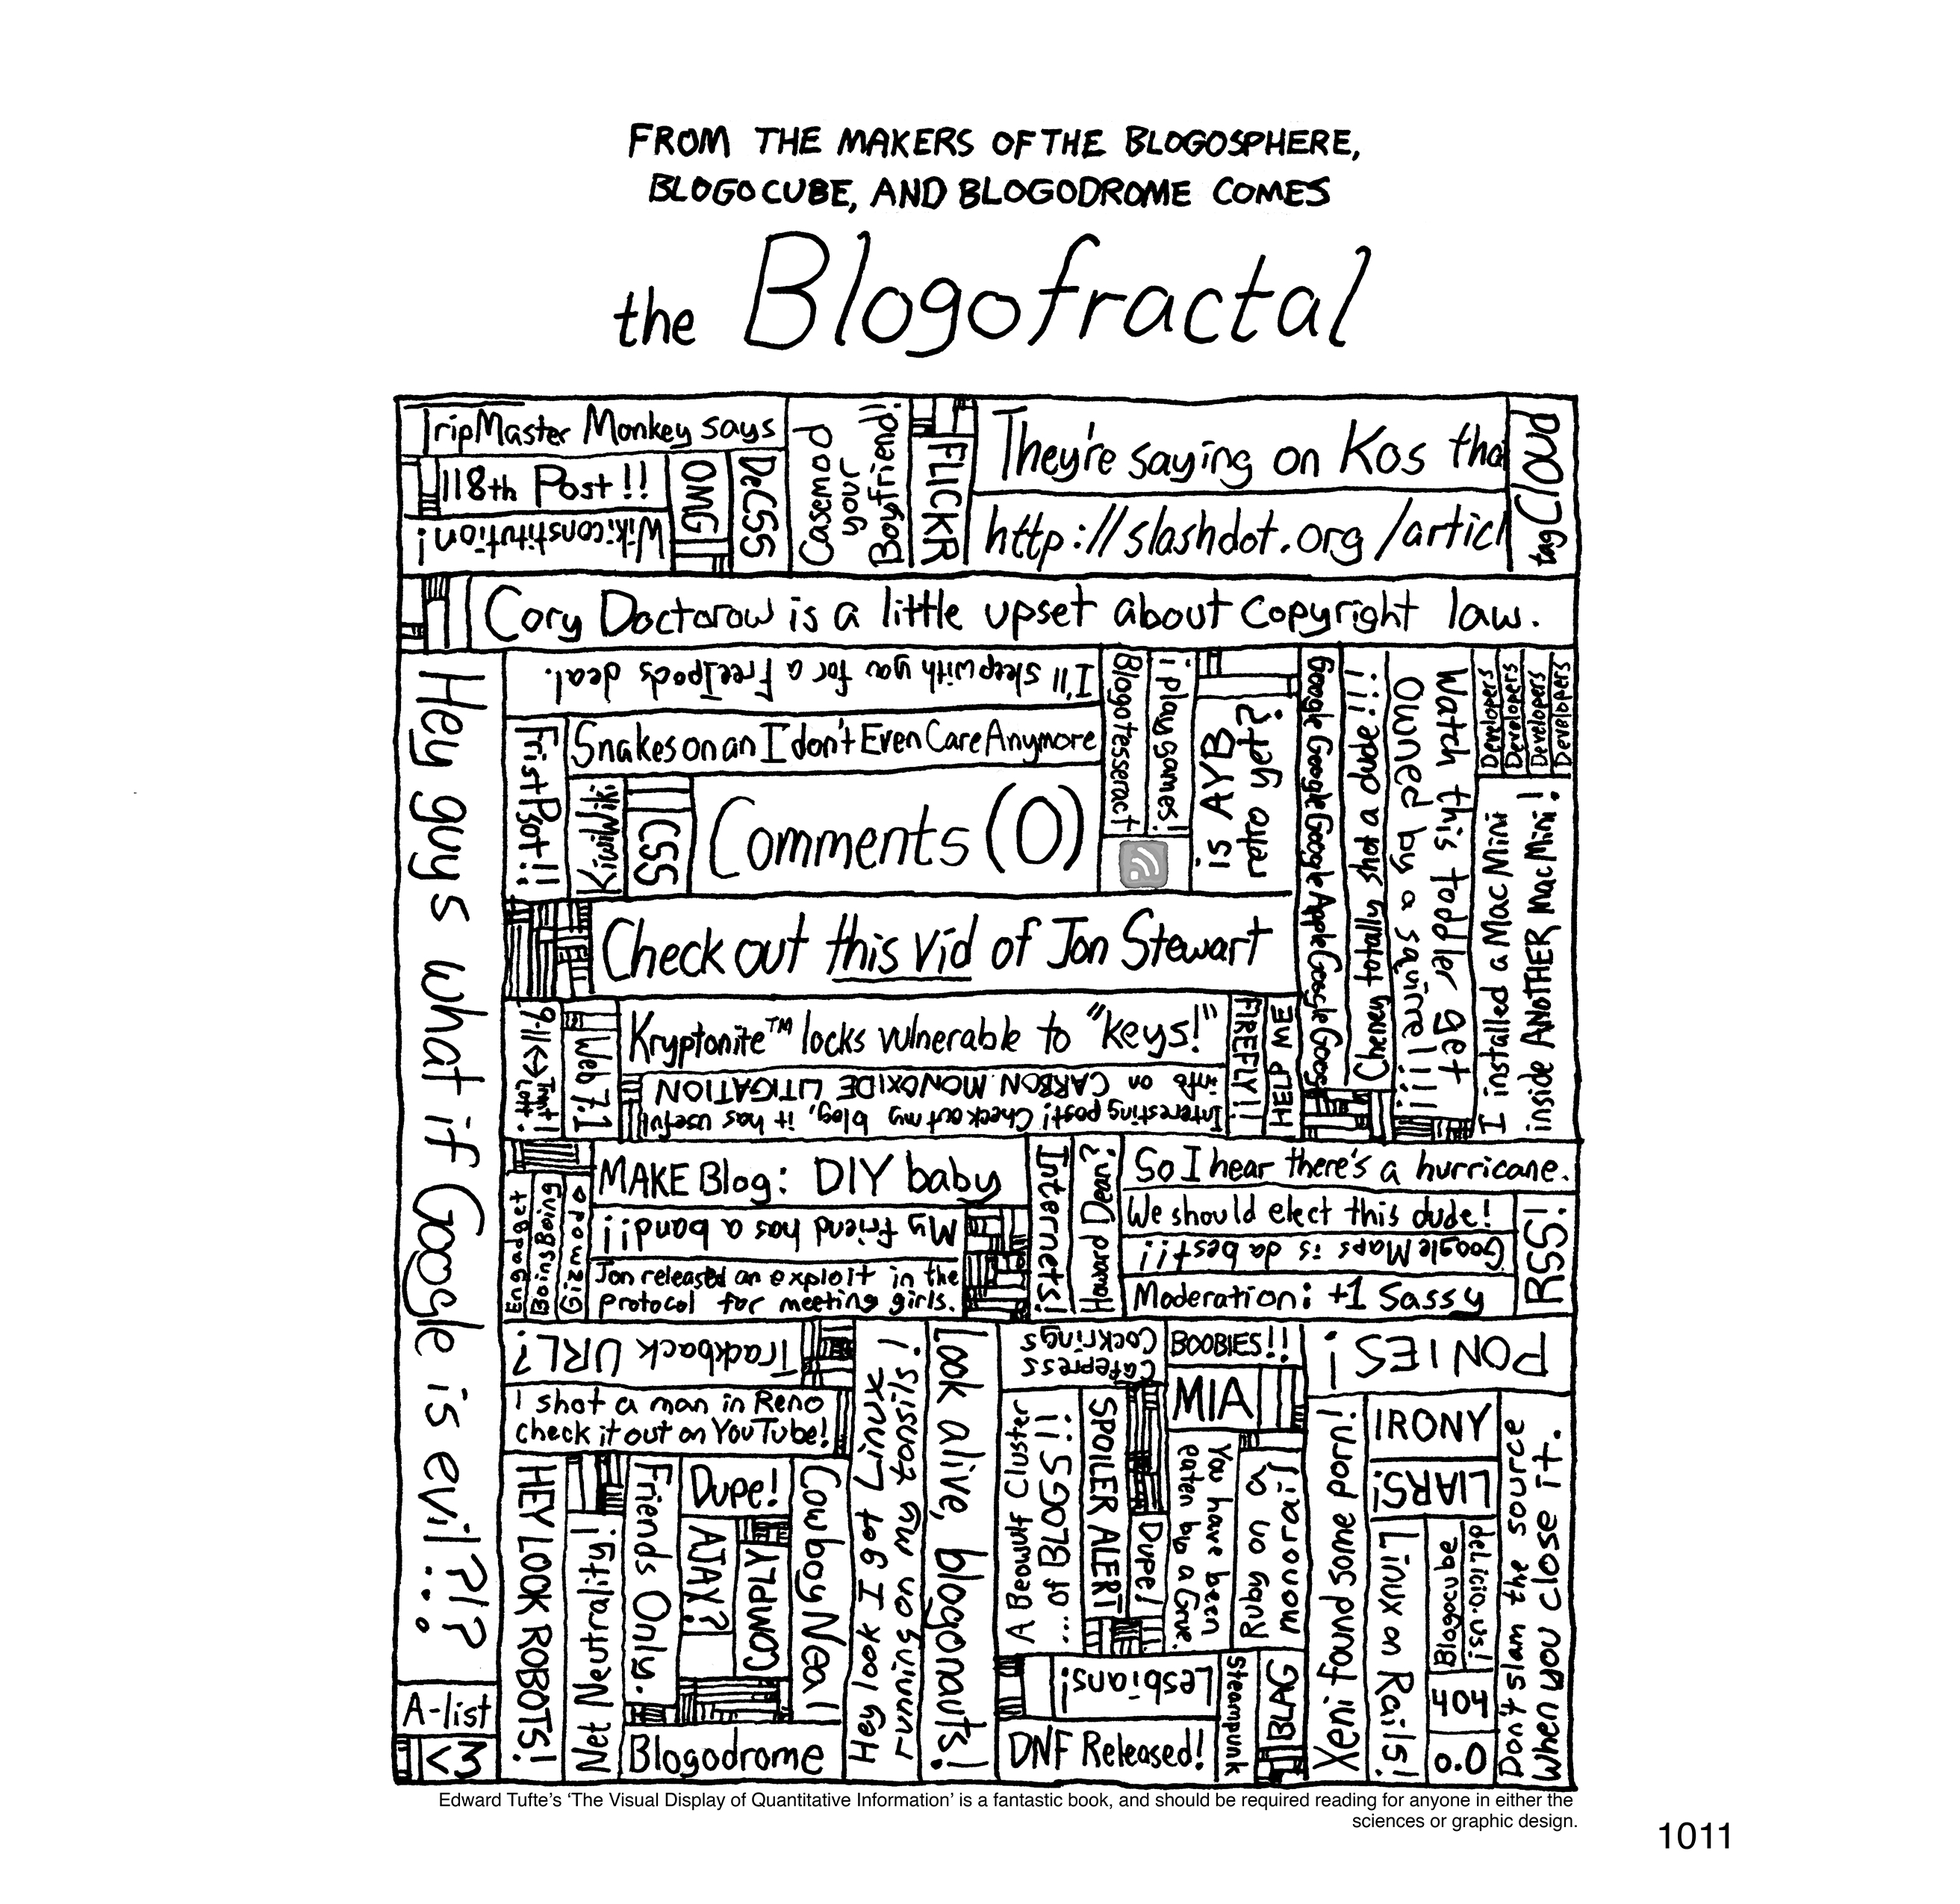 FROM THE MAKERS OF THE BLOGOSPHERE,
BLOGOCUBE, AND BLOGODROME COMES
the Blogofractal
TripMaster Monkey says
118th Post!!
Wikiconstitution!
OMG
DeCSS
Casemod
your
Boyfriend!
FLICKR
They're saying on Kos tha
http://slashdot.org/articl
tagCloud
Cory Doctorow is a little upset about copyright law.
Hey guys what if Google is evil?!?...
I'll sleep with you for a FreeIpods deal.
FristPsot!!!
Snakes on an I don't Even Care Anymore
KiwiWiki
CSS
Comments (0)
Blogotesseract
i play games!
is AYB
retro yet?
Google Google Google Apple Google Goog
¡¡¡ Cheney totally shot a dude !!!
Watch this toddler get
Owned by a squirrel!!!
Developers
Developers
Developers
Developers
I installed a Mac Mini
inside ANOTHER Mac Mini!
Check out this vid of Jon Stewart
9-11<->Trent
Lott!
Web 7.1
Kryptonite™ locks vulnerable to "keys!"
Interesting post! Check out my blog, it has useful
info on CARBON MONOXIDE LITIGATION
FIREFLY!!
HELP ME
Engadget
BoingBoing
Gizmodo
MAKE Blog: DIY baby
My friend has a band!!
Jon released an exploit in the
protocol for meeting girls.
Internets!
Howard Dean?
So I hear there's a hurricane.
We should elect this dude!
Google Maps is da best!!
Moderation: +1 Sassy
RSS!
Trackback URL?
I shot a man in Reno
check it out on YouTube!
HEY LOOK ROBOTS!
Net Neutrality!
Friends Only.
Dupe!
AJAX?
COMPLY
CowboyNeal
Blogodrome
Hey look I got Linux
running on my tonsils!
Look alive, blogonauts!
Cafepress
Cockrings
BOOBIES!!
MIA
PONIES!
A Beowulf Cluster
... of BLOGS!!
SPOILER ALERT!
Dupe!
You have been
eaten by a Grue.
Ruby on a
monorail
Lesbians!
DNF Released!
Steampunk
BLAG
Xeni found some porn!
IRONY
LIARS!
Linux on Rails!
Blogocube
del.icio.us!
404
o.O
Don't slam the source
When you close it.
A-list
<3
Edward Tufte's 'The Visual Display of Quantitative Information' is a fantastic book, and should be required reading for anyone in either the
sciences or graphic design.
1011